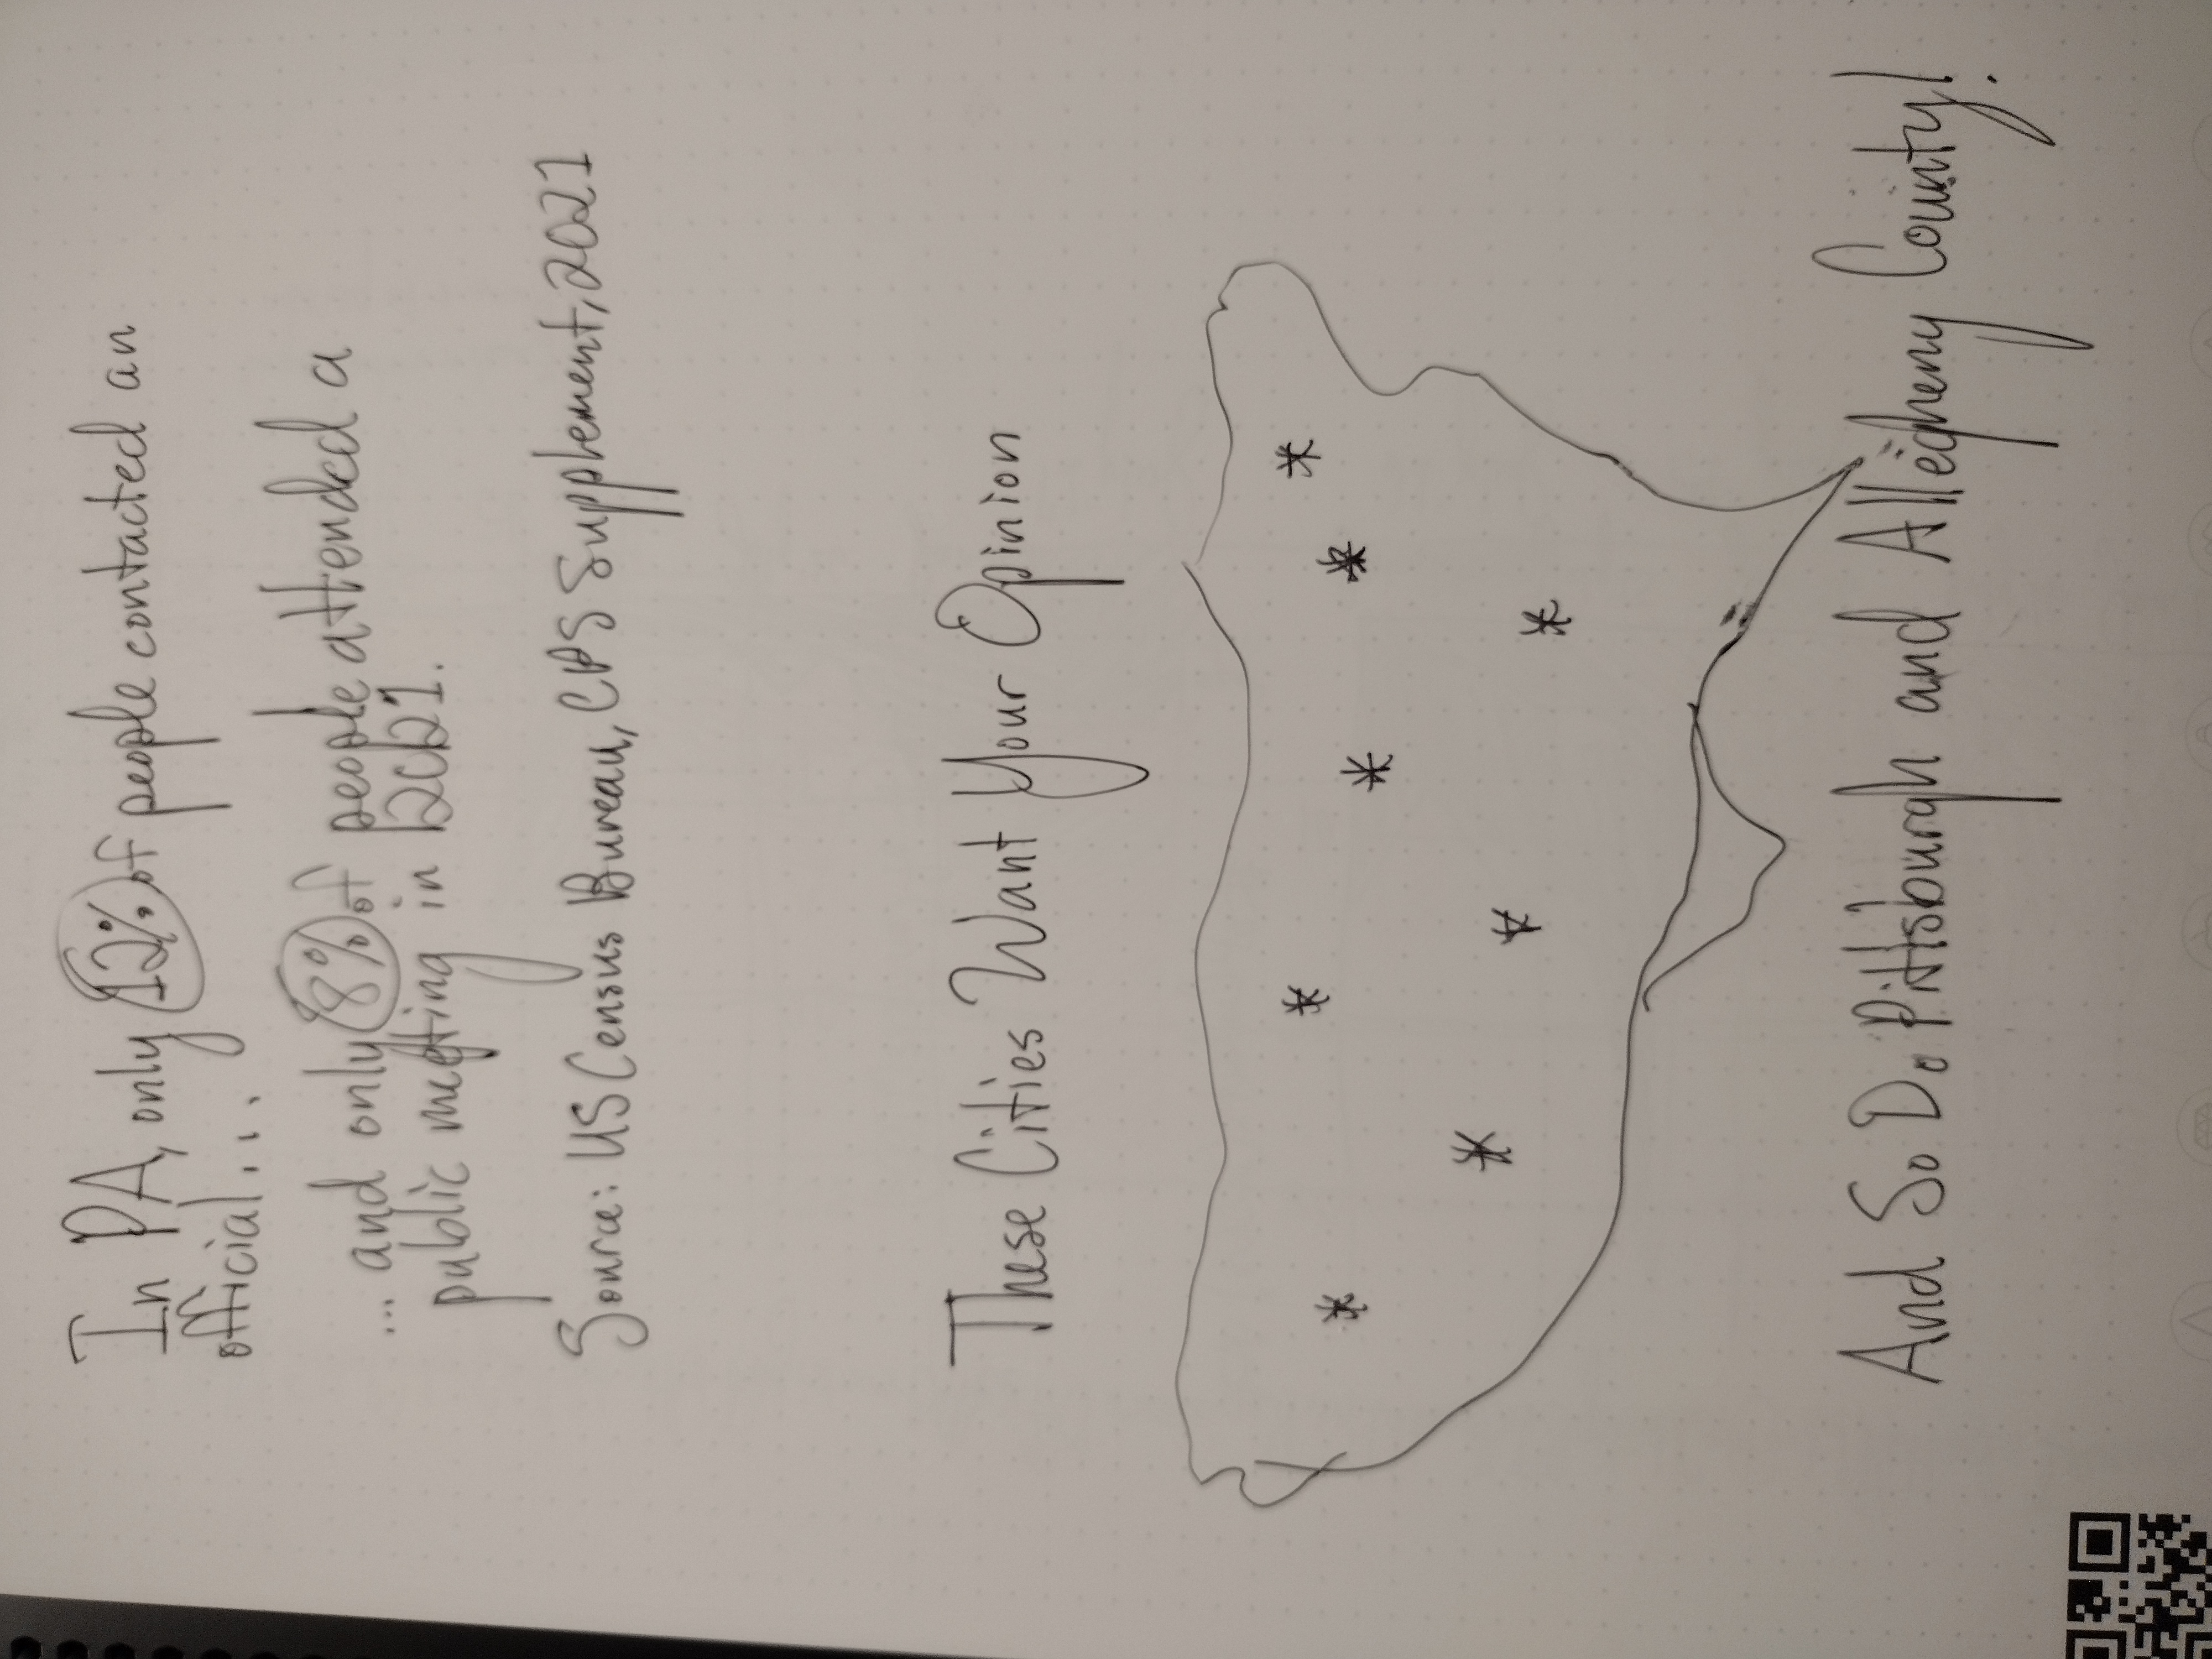 In PA, only 12% of people contacted an
official...
... and only 8% of people attended a
public meeting in 2021.
Source: US Census Bureau, CPS Supplement, 2021
These Cities Want Your Opinion
And So Do Pittsburgh and Allegheny County!